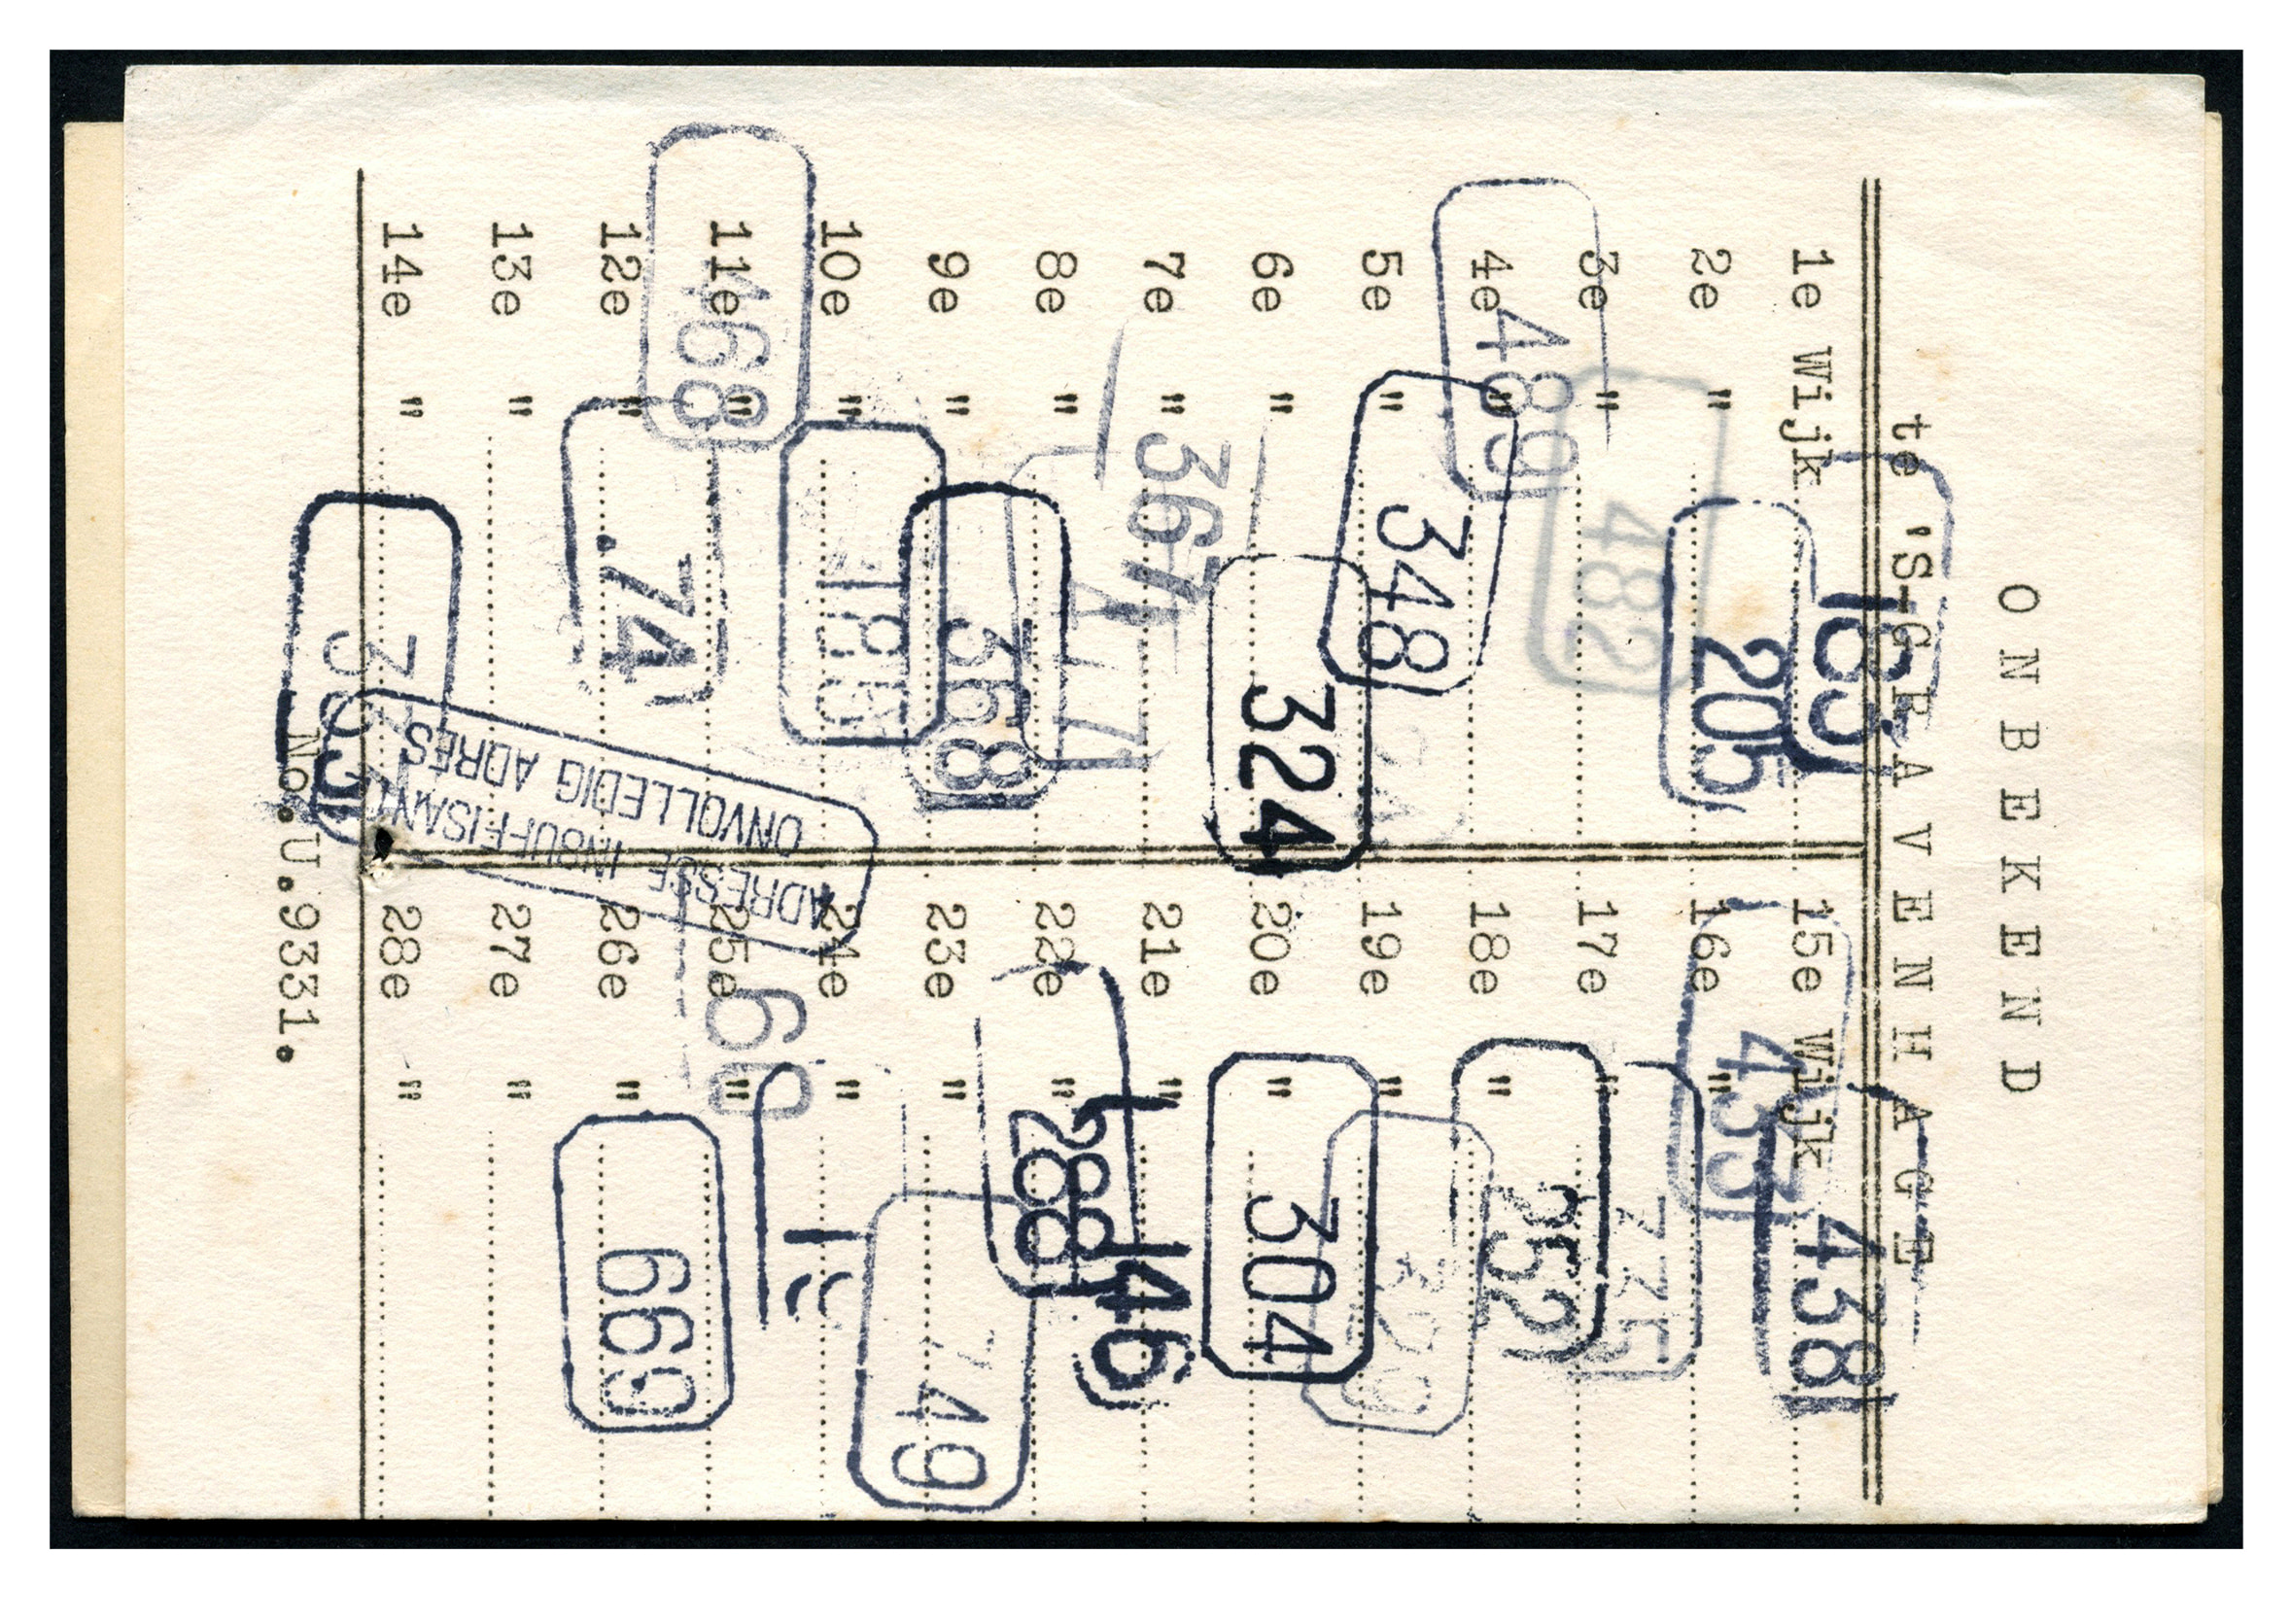 ONBEKEND
te 'S-GRAVENHAGE
1e Wijk 183 15e Wijk 438
2e " 205 16e " 433
3e " 482 17e " 335
4e " 489 18e " 252
5e " 348 19e "
6e " 324 20e " 304
7e " 367 21e " 146
8e " 22e " 288 288
9e " 368 23e " 749
10e " 185 24e "
11e " 468 25e " 60
12e " .74 26e " 669
13e " 27e "
14e " 28e "
ADRESSE INSUFFISANTE
ONVOLLEDIG ADRES
No.U.9331.